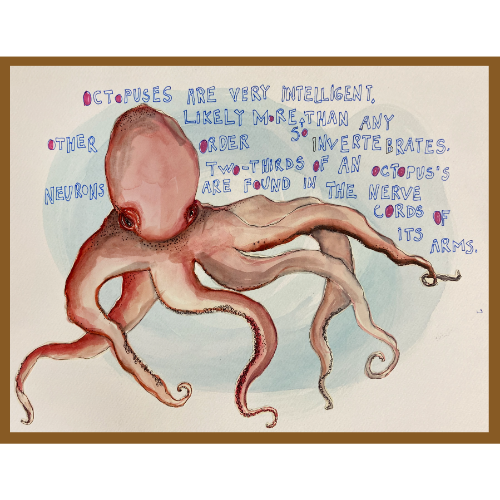 OCTOPUSES ARE VERY INTELLIGENT,
LIKELY MORE SO THAN ANY
OTHER ORDER INVERTEBRATES.
TWO-THIRDS OF AN OCTOPUS'S
NEURONS ARE FOUND IN THE NERVE
CORDS OF
ITS ARMS.